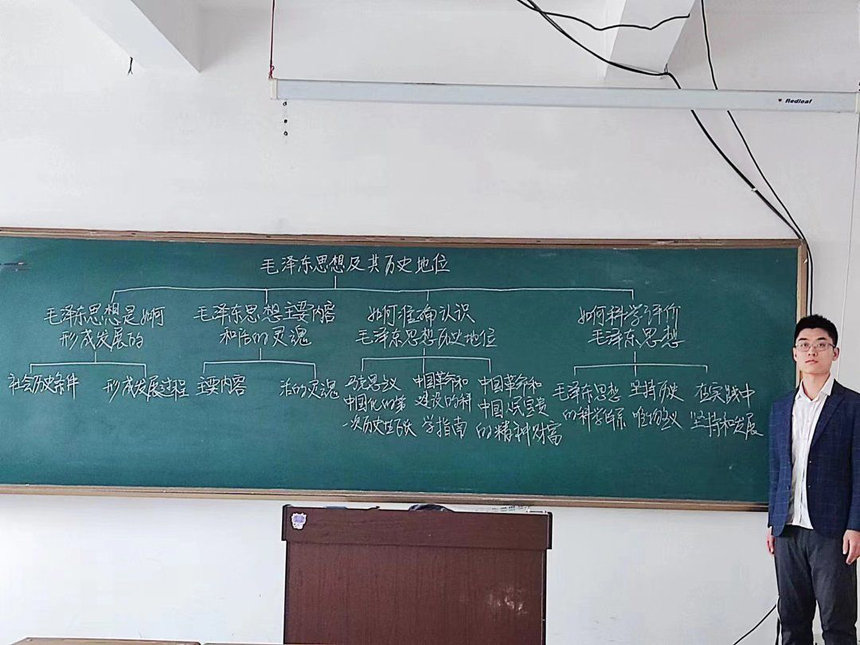 Redleaf
毛泽东思想及其历史地位
毛泽东思想是如何
形成发展的
毛泽东思想主要内容
和活的灵魂
如何准确认识
毛泽东思想历史地位
如何科学评价
毛泽东思想
社会历史条件
形成发展过程
主要内容
活的灵魂
马克思主义
中国化的第
一次历史性飞跃
中国革命和
建设的科
学指南
中国革命和
中国人民宝贵
的精神财富
毛泽东思想
的科学体系
坚持历史
唯物主义
在实践中
坚持和发展